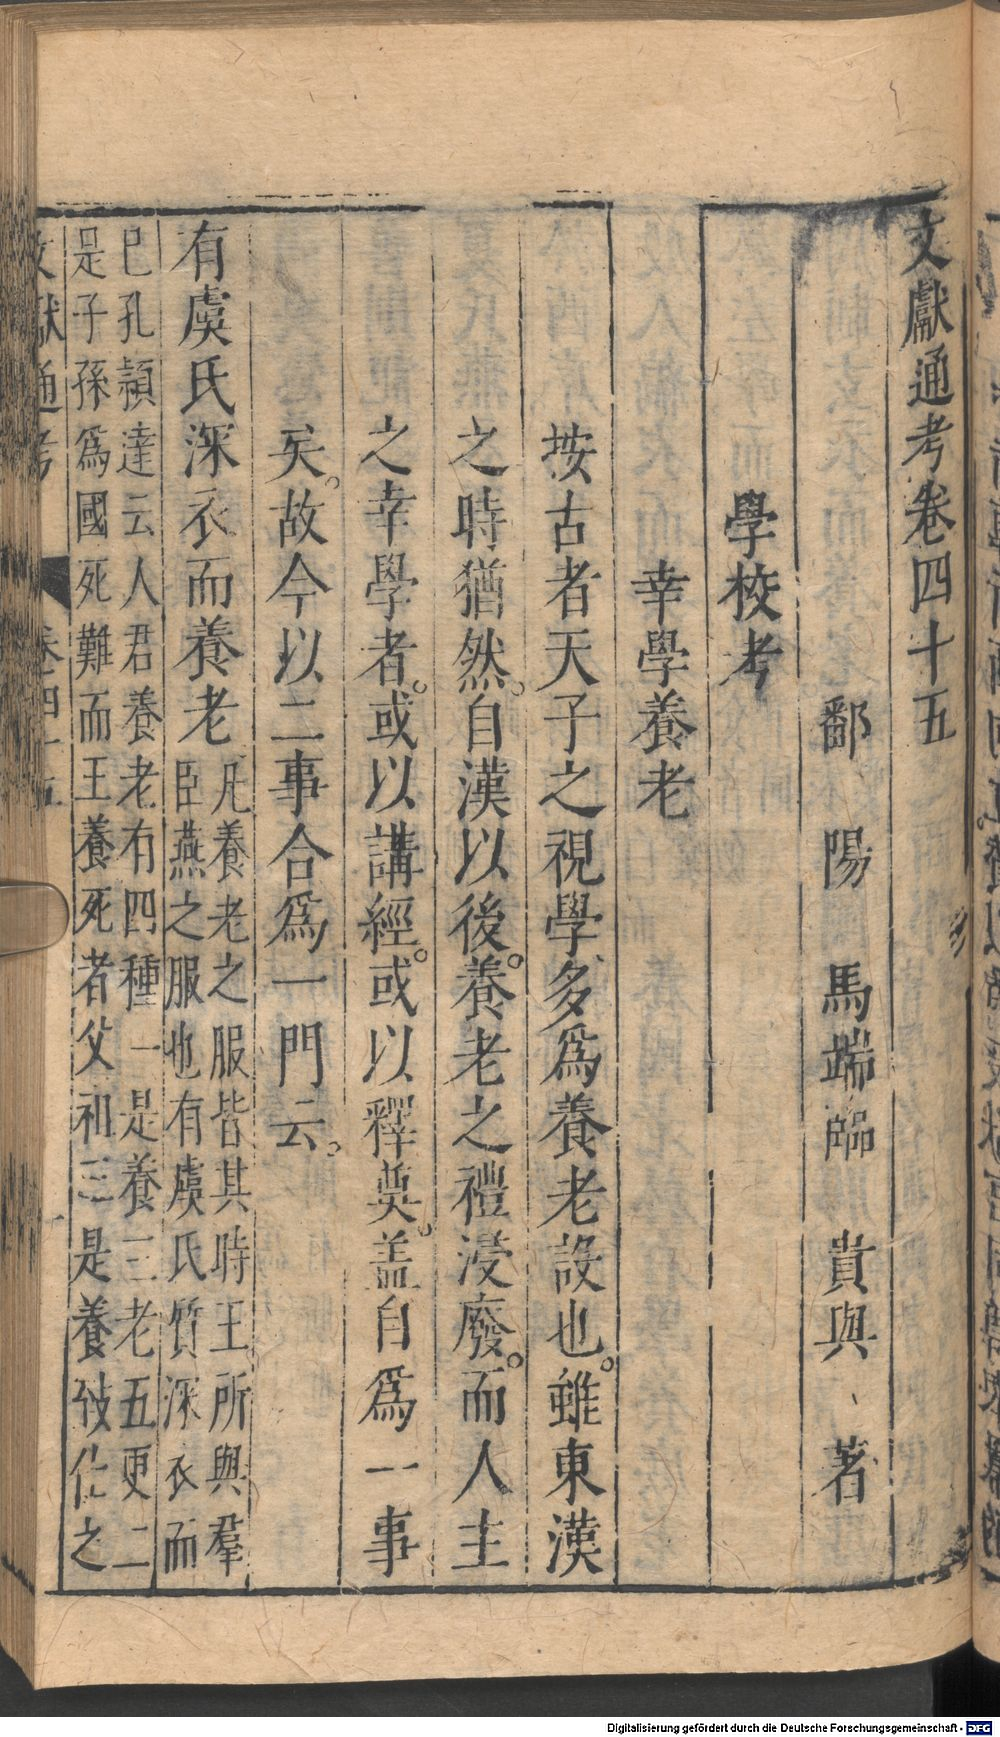 文獻通考卷四十五
鄱陽馬端臨貴與著
學校考
幸學養老
按古者天子之視學多爲養老設也。雖東漢
之時猶然。自漢以後。養老之禮浸廢。而人主
之幸學者。或以講經。或以釋奠。盖自爲一事
矣。故今以二事合爲一門云。
有虞氏深衣而養老凡養老之服皆其時王所與羣
臣燕之服也有虞氏質深衣而
已孔頴達云人君養老有四種一是養三老五更二
是子孫爲國死難而王養死者父祖三是養致仕之
文獻通考 卷四十五
Digitalisierung gefördert durch die Deutsche Forschungsgemeinschaft - DFG